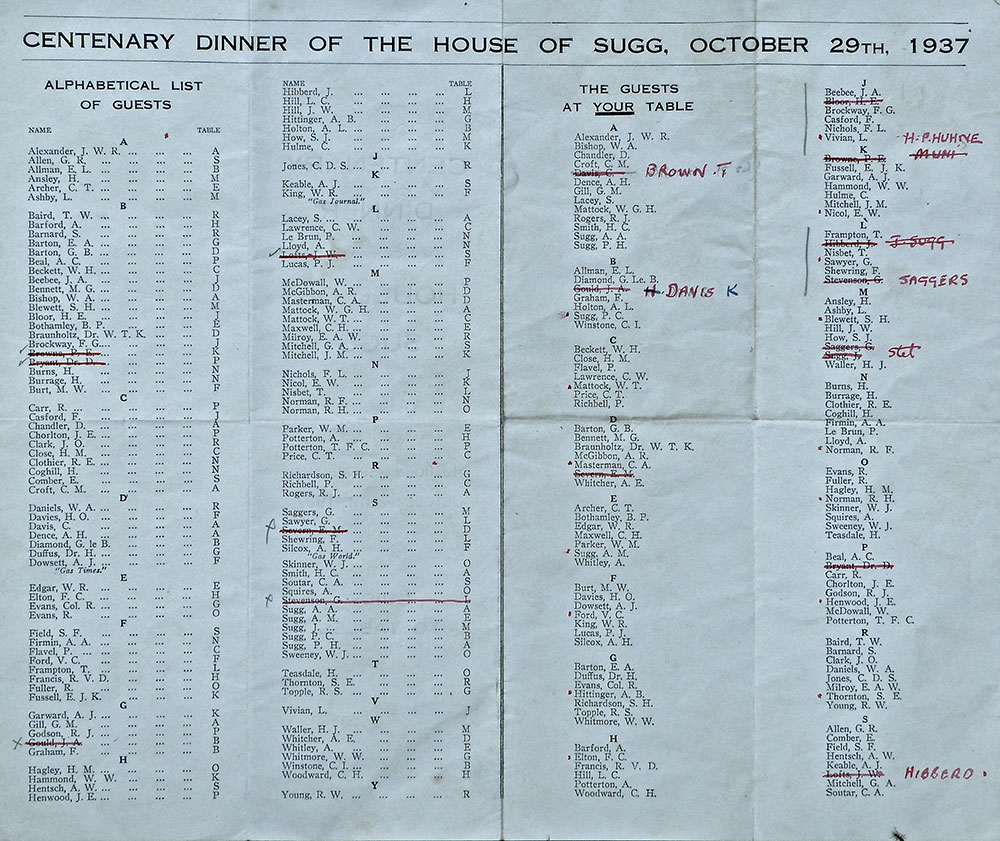 CENTENARY DINNER OF THE HOUSE OF SUGG, OCTOBER 29TH, 1937
ALPHABETICAL LIST
OF GUESTS
NAME TABLE
A
Alexander, J. W. R. ... A
Allen, G. R. ... S
Allman, E. L. ... B
Ansley, H. ... M
Archer, C. T. ... E
Ashby, L. ... M
B
Baird, T. W. ... R
Barford, A. ... H
Barnard, S. ... R
Barton, E. A. ... G
Barton, G. B. ... D
Beal, A. C. ... P
Beckett, W. H. ... C
Beebee, J. A. ... J
Bennett, M. G. ... D
Bishop, W. A. ... A
Blewett, S. H. ... M
Bloor, H. E. ... J
Bothamley, B. P. ... E
Braunholtz, Dr. W. T. K. ... D
Brockway, F. G. ... J
Browne, P. E. ... K
Bryant, Dr. D. ... P
Burns, H. ... N
Burrage, H. ... N
Burt, M. W. ... F
C
Carr, R. ... P
Casford, F. ... J
Chandler, D. ... A
Chorlton, J. E. ... P
Clark, J. O. ... R
Close, H. M. ... C
Clothier, R. E. ... N
Coghill, H. ... N
Comber, E. ... S
Croft, C. M. ... A
D
Daniels, W. A. ... R
Davies, H. O. ... F
Davis, C. ... A
Dence, A. H. ... A
Diamond, G. le B. ... B
Duffus, Dr. H. ... G
Dowsett, A. J. ... F
"Gas Times."
E
Edgar, W. R. ... E
Elton, F. C. ... H
Evans, Col. R. ... G
Evans, R. ... O
F
Field, S. F. ... S
Firmin, A. A. ... N
Flavel, P. ... C
Ford, V. C. ... F
Frampton, T. ... L
Francis, R. V. D. ... H
Fuller, R. ... O
Fussell, E. J. K. ... K
G
Garward, A. J. ... K
Gill, G. M. ... A
Godson, R. J. ... P
Gould, J. A. ... B
Graham, F. ... B
H
Hagley, H. M. ... O
Hammond, W. W. ... K
Hentsch, A. W. ... S
Henwood, J. E. ... P
NAME TABLE
Hibberd, J. ... L
Hill, L. C. ... H
Hill, J. W. ... M
Hittinger, A. B. ... G
Holton, A. L. ... B
How, S. J. ... M
Hulme, C. ... K
J
Jones, C. D. S. ... R
K
Keable, A. J. ... S
King, W. R. ... F
"Gas Journal."
L
Lacey, S. ... A
Lawrence, C. W. ... C
Le Brun, P. ... N
Lloyd, A. ... N
Lofts, J. W. ... S
Lucas, P. J. ... F
M
McDowall, W. ... P
McGibbon, A. R. ... D
Masterman, C. A. ... D
Mattock, W. G. H. ... A
Mattock, W. T. ... C
Maxwell, C. H. ... E
Milroy, E. A. W. ... R
Mitchell, G. A. ... S
Mitchell, J. M. ... K
N
Nichols, F. L. ... J
Nicol, E. W. ... K
Nisbet, T. ... L
Norman, R. F. ... N
Norman, R. H. ... O
P
Parker, W. M. ... E
Potterton, A. ... H
Potterton, T. F. C. ... P
Price, C. T. ... C
R
Richardson, S. H. ... G
Richbell, P. ... C
Rogers, R. J. ... A
S
Saggers, G. ... M
Sawyer, G. ... L
Severn, E. M. ... D
Shewring, F. ... L
Silcox, A. H. ... F
"Gas World."
Skinner, W. J. ... O
Smith, H. C. ... A
Soutar, C. A. ... S
Squires, A. ... O
Stevenson, G. ... L
Sugg, A. A. ... A
Sugg, A. M. ... E
Sugg, J. ... M
Sugg, P. C. ... B
Sugg, P. H. ... A
Sweeney, W. J. ... O
T
Teasdale, H. ... O
Thornton, S. E. ... R
Topple, R. S. ... G
V
Vivian, L. ... J
W
Waller, H. J. ... M
Whitcher, A. E. ... D
Whitley, A. ... E
Whitmore, W. W. ... G
Winstone, C. I. ... B
Woodward, C. H. ... H
Y
Young, R. W. ... R
THE GUESTS
AT YOUR TABLE
A
Alexander, J. W. R.
Bishop, W. A.
Chandler, D.
Croft, C. M.
Davis, C. BROWN F
Dence, A. H.
Gill, G. M.
Lacey, S.
Mattock, W. G. H.
Rogers, R. J.
Smith, H. C.
Sugg, A. A.
Sugg, P. H.
B
Allman, E. L.
Diamond, G. Le. B.
Gould, J. A. H. DAVIS K
Graham, F.
Holton, A. L.
Sugg, P. C.
Winstone, C. I.
C
Beckett, W. H.
Close, H. M.
Flavel, P.
Lawrence, C. W.
Mattock, W. T.
Price, C. T.
Richbell, P.
D
Barton, G. B.
Bennett, M. G.
Braunholtz, Dr. W. T. K.
McGibbon, A. R.
Masterman, C. A.
Severn, E. M.
Whitcher, A. E.
E
Archer, C. T.
Bothamley, B. P.
Edgar, W. R.
Maxwell, C. H.
Parker, W. M.
Sugg, A. M.
Whitley, A.
F
Burt, M. W.
Davies, H. O.
Dowsett, A. J.
Ford, V. C.
King, W. R.
Lucas, P. J.
Silcox, A. H.
G
Barton, E. A.
Duffus, Dr. H.
Evans, Col. R.
Hittinger, A. B.
Richardson, S. H.
Topple, R. S.
Whitmore, W. W.
H
Barford, A.
Elton, F. C.
Francis, R. V. D.
Hill, L. C.
Potterton, A.
Woodward, C. H.
J
Beebee, J. A.
Bloor, H. E.
Brockway, F. G.
Casford, F.
Nichols, F. L.
Vivian, L. H. P. HUHNE
K MUNI
Browne, P. E.
Fussell, E. J. K.
Garward, A. J.
Hammond, W. W.
Hulme, C.
Mitchell, J. M.
Nicol, E. W.
L
Frampton, T.
Hibberd, J. J. SUGG
Nisbet, T.
Sawyer, G.
Shewring, F.
Stevenson, G. SAGGERS
M
Ansley, H.
Ashby, L.
Blewett, S. H.
Hill, J. W.
How, S. J.
Saggers, G.
Sugg, J. Stet
Waller, H. J.
N
Burns, H.
Burrage, H.
Clothier, R. E.
Coghill, H.
Firmin, A. A.
Le Brun, P.
Lloyd, A.
Norman, R. F.
O
Evans, R.
Fuller, R.
Hagley, H. M.
Norman, R. H.
Skinner, W. J.
Squires, A.
Sweeney, W. J.
Teasdale, H.
P
Beal, A. C.
Bryant, Dr. D.
Carr, R.
Chorlton, J. E.
Godson, R. J.
Henwood, J. E.
McDowall, W.
Potterton, T. F. C.
R
Baird, T. W.
Barnard, S.
Clark, J. O.
Daniels, W. A.
Jones, C. D. S.
Milroy, E. A. W.
Thornton, S. E.
Young, R. W.
S
Allen, G. R.
Comber, E.
Field, S. F.
Hentsch, A. W.
Keable, A. J.
Lofts, J. W. HIBBERD
Mitchell, G. A.
Soutar, C. A.